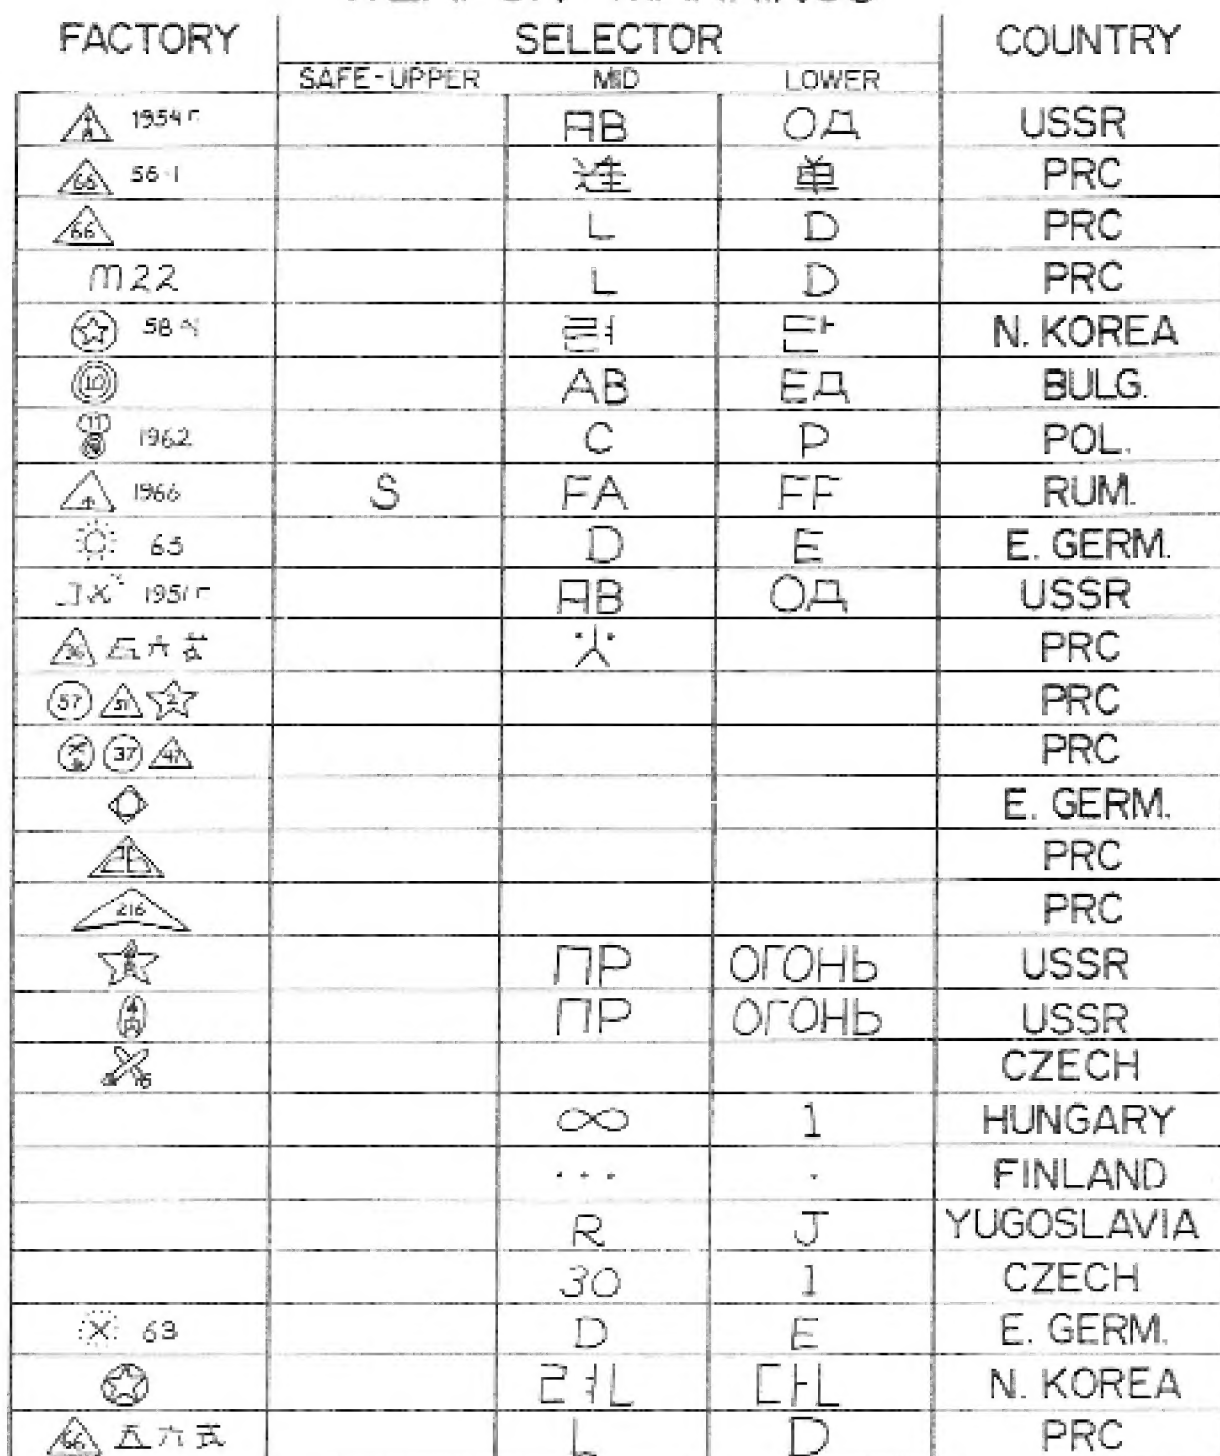 FACTORY SELECTOR COUNTRY
SAFE-UPPER MID LOWER
1954 г АВ ОД USSR
66 56-1 连 单 PRC
66 L D PRC
M22 L D PRC
58 련 단 N. KOREA
10 АВ ЕД BULG.
11 1962 C P POL.
1966 S FA FF RUM.
65 D E E. GERM.
1951 г АВ ОД USSR
36 五六式 PRC
57 51 2 PRC
37 47 PRC
E. GERM.
PRC
216 PRC
ПР ОГОНЬ USSR
ПР ОГОНЬ USSR
CZECH
∞ 1 HUNGARY
... . FINLAND
R J YUGOSLAVIA
30 1 CZECH
63 D E E. GERM.
련 단 N. KOREA
66 五六式 L D PRC